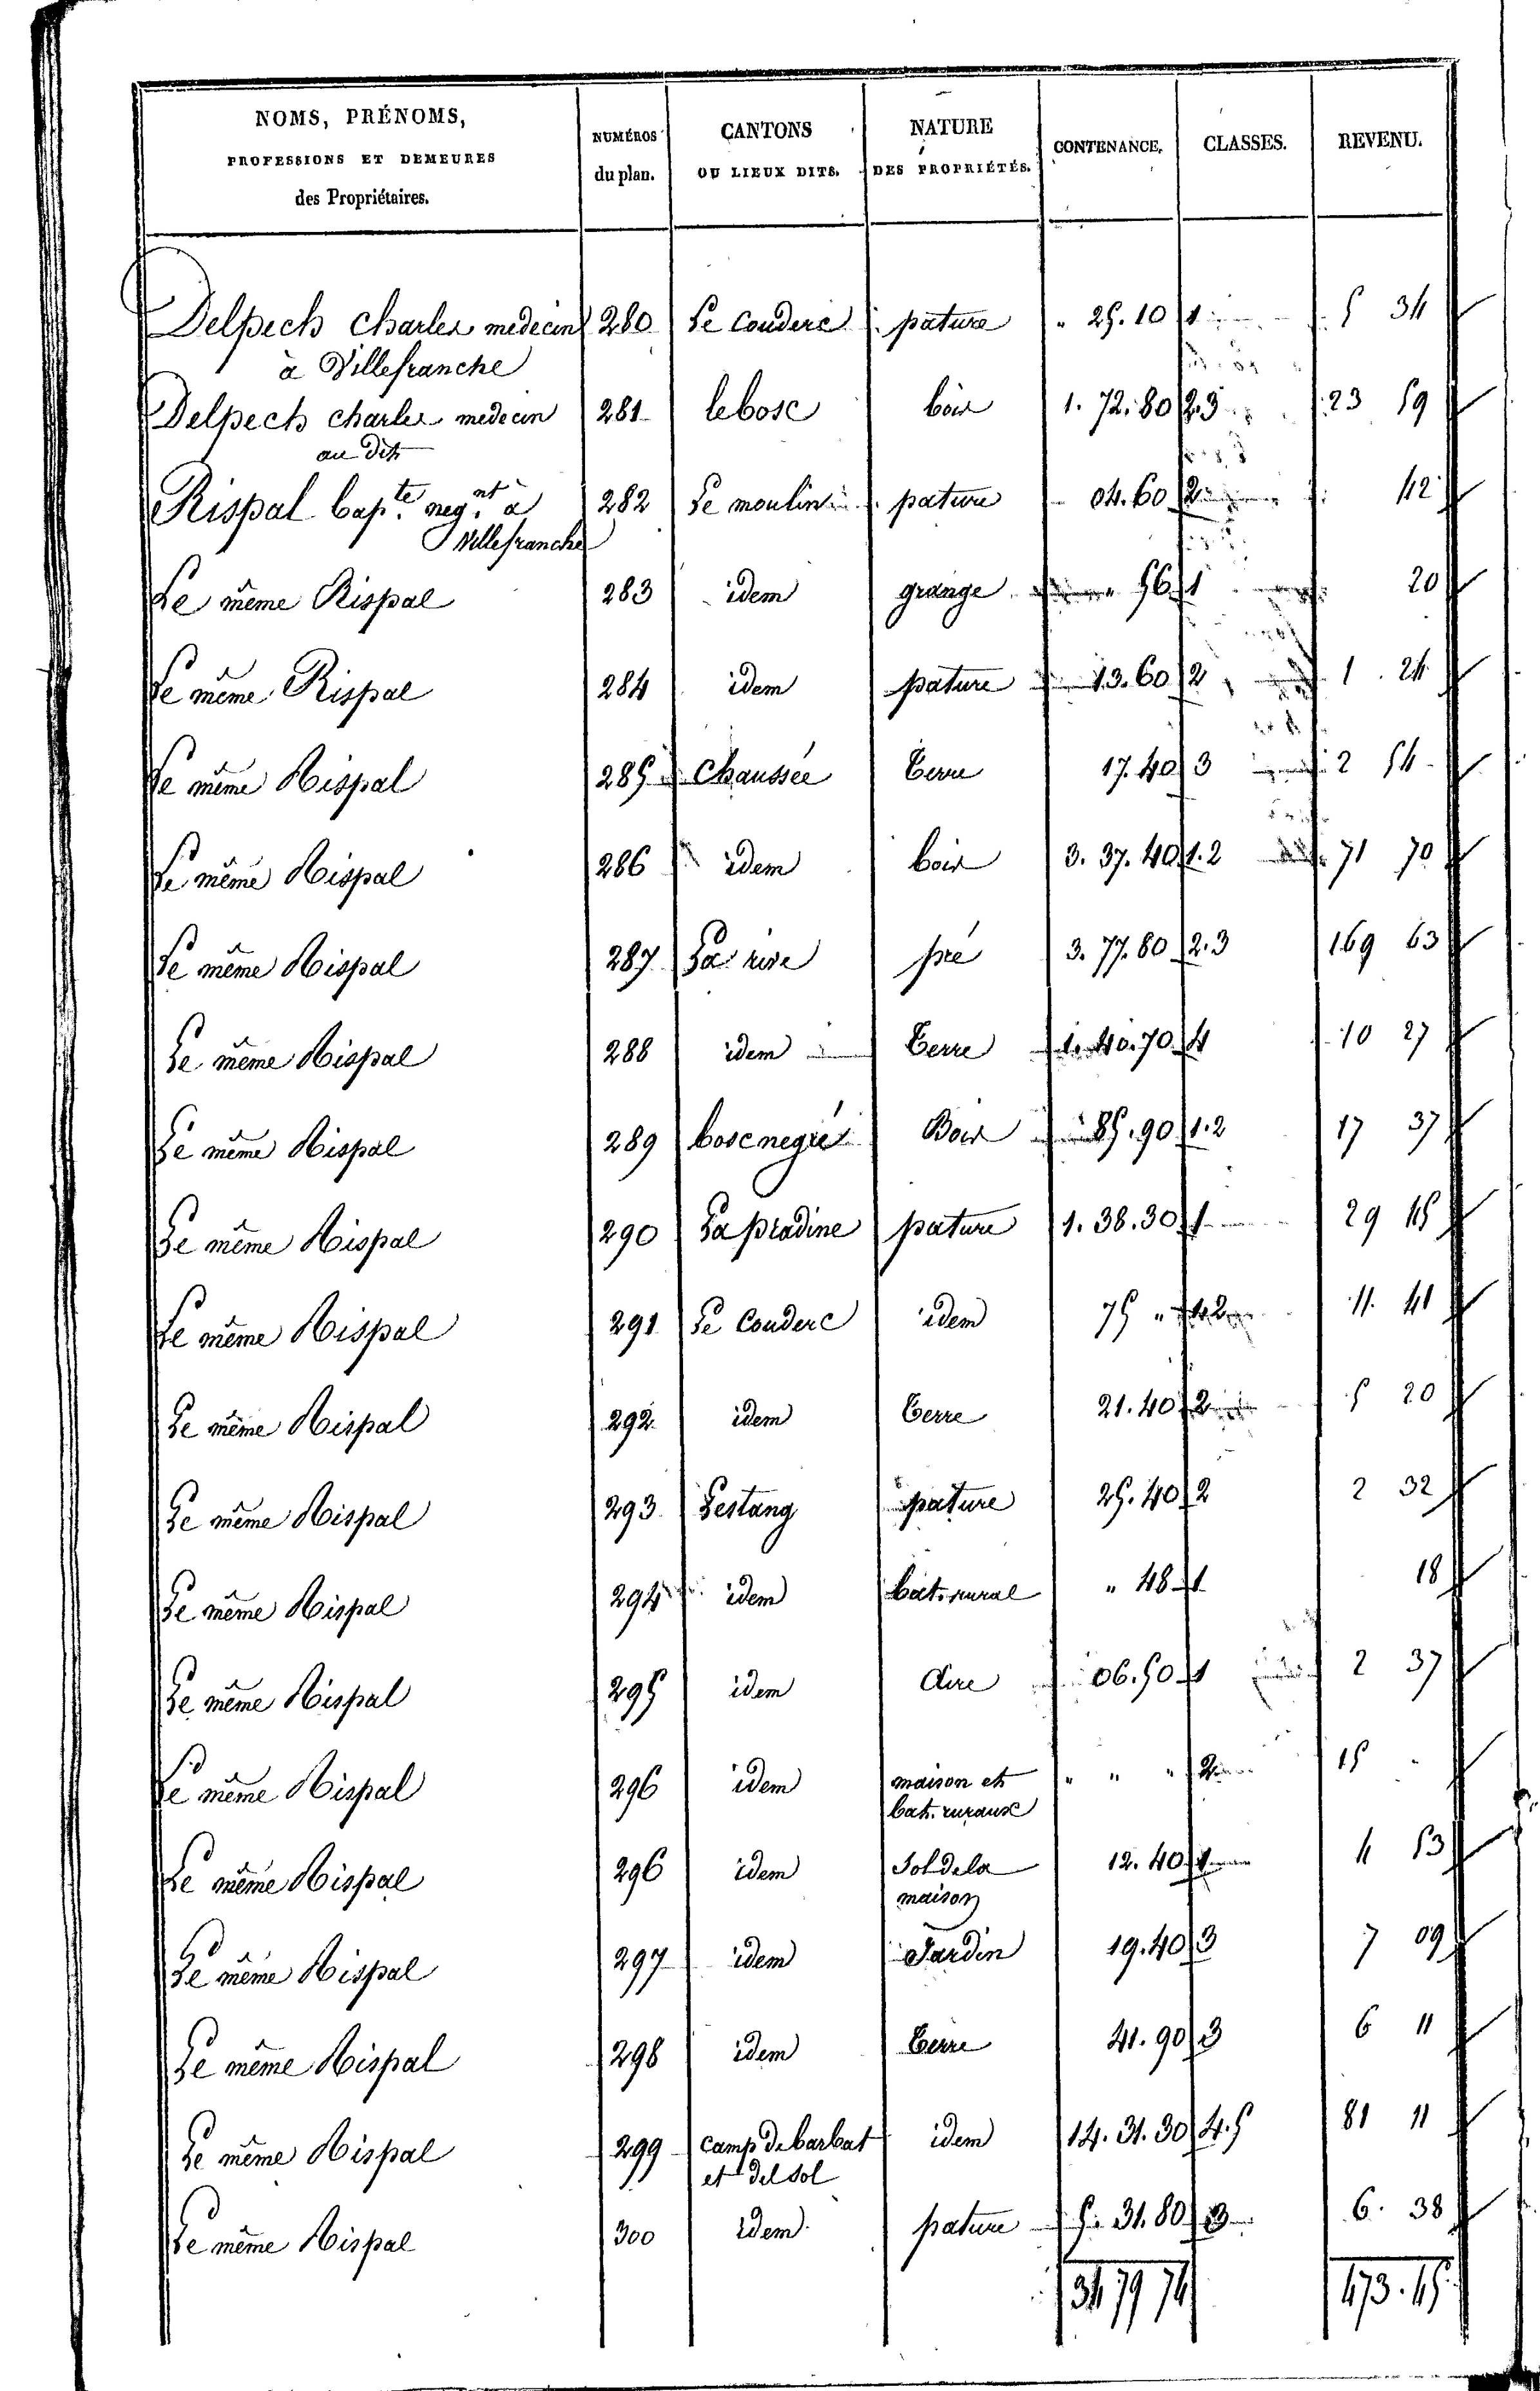 NOMS, PRÉNOMS,
PROFESSIONS ET DEMEURES
des Propriétaires.
NUMÉROS
du plan.
CANTONS
OU LIEUX DITS.
NATURE
DES PROPRIÉTÉS.
CONTENANCE.
CLASSES.
REVENU.
Delpech Charles medecin 280 Le Couderc pature " 25.10 1 5 34
à Villefranche
Delpech charles medecin 281 le bosc bois 1. 72. 80 2.3 23 59
au dit
Rispal bapte. negnt. à 282 Le moulin pature 04. 60 2 42
Villefranche
Le même Rispal 283 idem grange " 56 1 20
Le même Rispal 284 idem pature 13. 60 2 1 24
Le même Rispal 285 Chaussée terre 17. 40 3 2 54
Le même Rispal 286 idem bois 3. 37. 40 1. 2 71 70
Le même Rispal 287 La rive pré 3. 77. 80 2. 3 169 63
Le même Rispal 288 idem terre 1. 40. 70 4 10 27
Le même Rispal 289 bosc negré Bois 85. 90 1. 2 17 37
Le même Rispal 290 La pradine pature 1. 38. 30 1 29 45
Le même Rispal 291 Le Couderc idem 75 " 1.2 11. 41
Le même Rispal 292 idem terre 21. 40 2 5 20
Le même Rispal 293 Lestang pature 25. 40 2 2 32
Le même Rispal 294 idem bat. rural " 48 1 18
Le même Rispal 295 idem aire 06. 50 1 2 37
Le même Rispal 296 idem maison et " " " 2 15
bat. ruraux
Le même Rispal 296 idem Sol de la 12. 40 1 4 53
maison
Le même Rispal 297 idem Jardin 19. 40 3 7 09
Le même Rispal 298 idem terre 41. 90 3 6 11
Le même Rispal 299 camp de barbat idem 14. 31. 30 4. 5 81 11
et del sol
Le même Rispal 300 idem pature 5. 31. 80 3 6. 38
34 79 74 473. 45